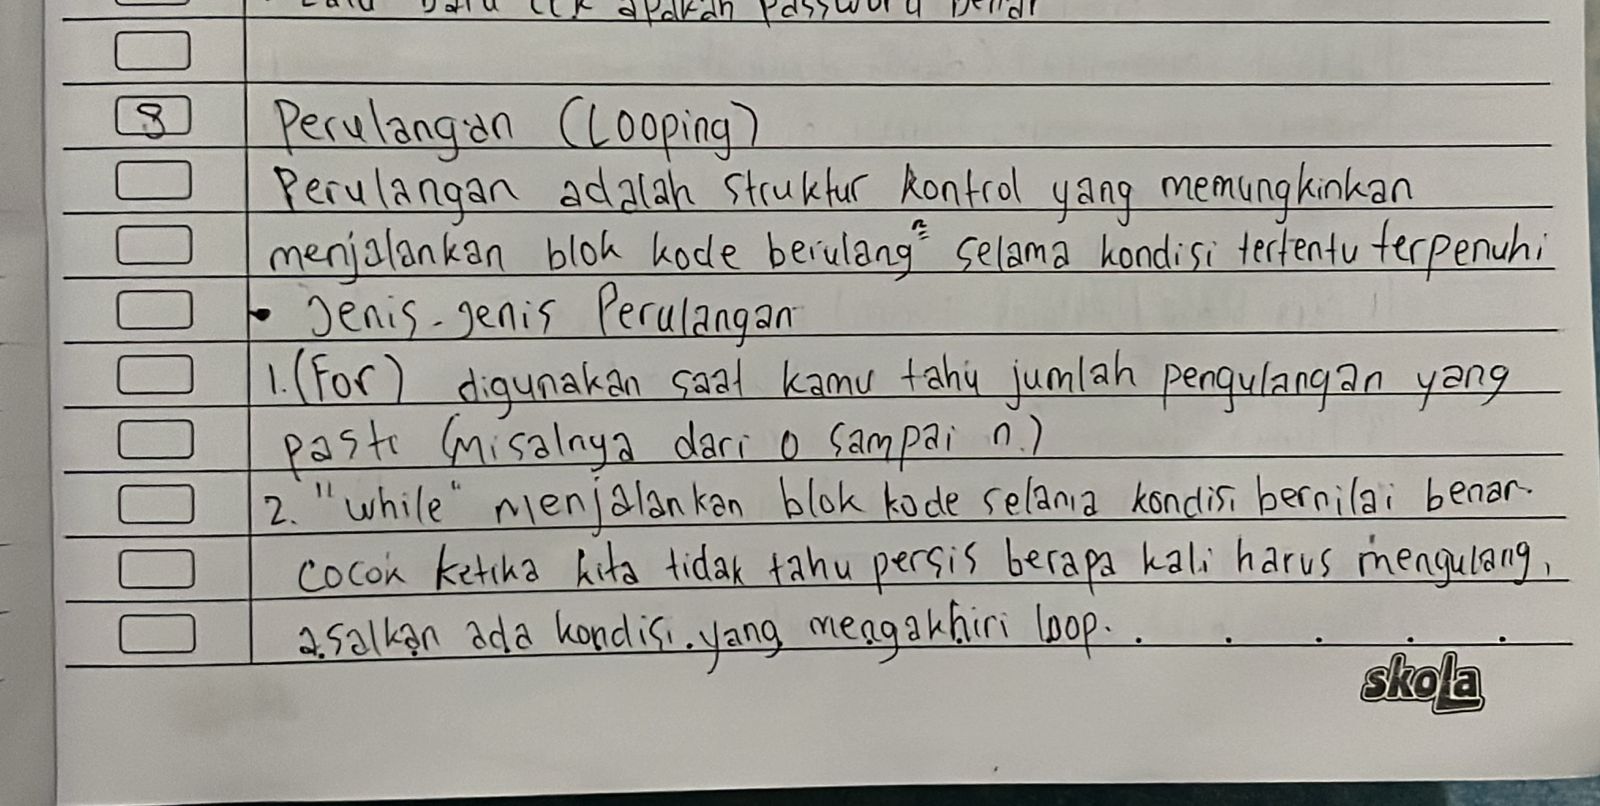 baru cek apakah password benar
8 Perulangan (Looping)
Perulangan adalah struktur kontrol yang memungkinkan
menjalankan blok kode berulang² selama kondisi tertentu terpenuhi
• Jenis-jenis Perulangan
1. (For) digunakan saat kamu tahu jumlah pengulangan yang
pasti (misalnya dari 0 sampai n.)
2. "while" menjalankan blok kode selama kondisi bernilai benar.
cocok ketika kita tidak tahu persis berapa kali harus mengulang,
asalkan ada kondisi yang mengakhiri loop.
skola